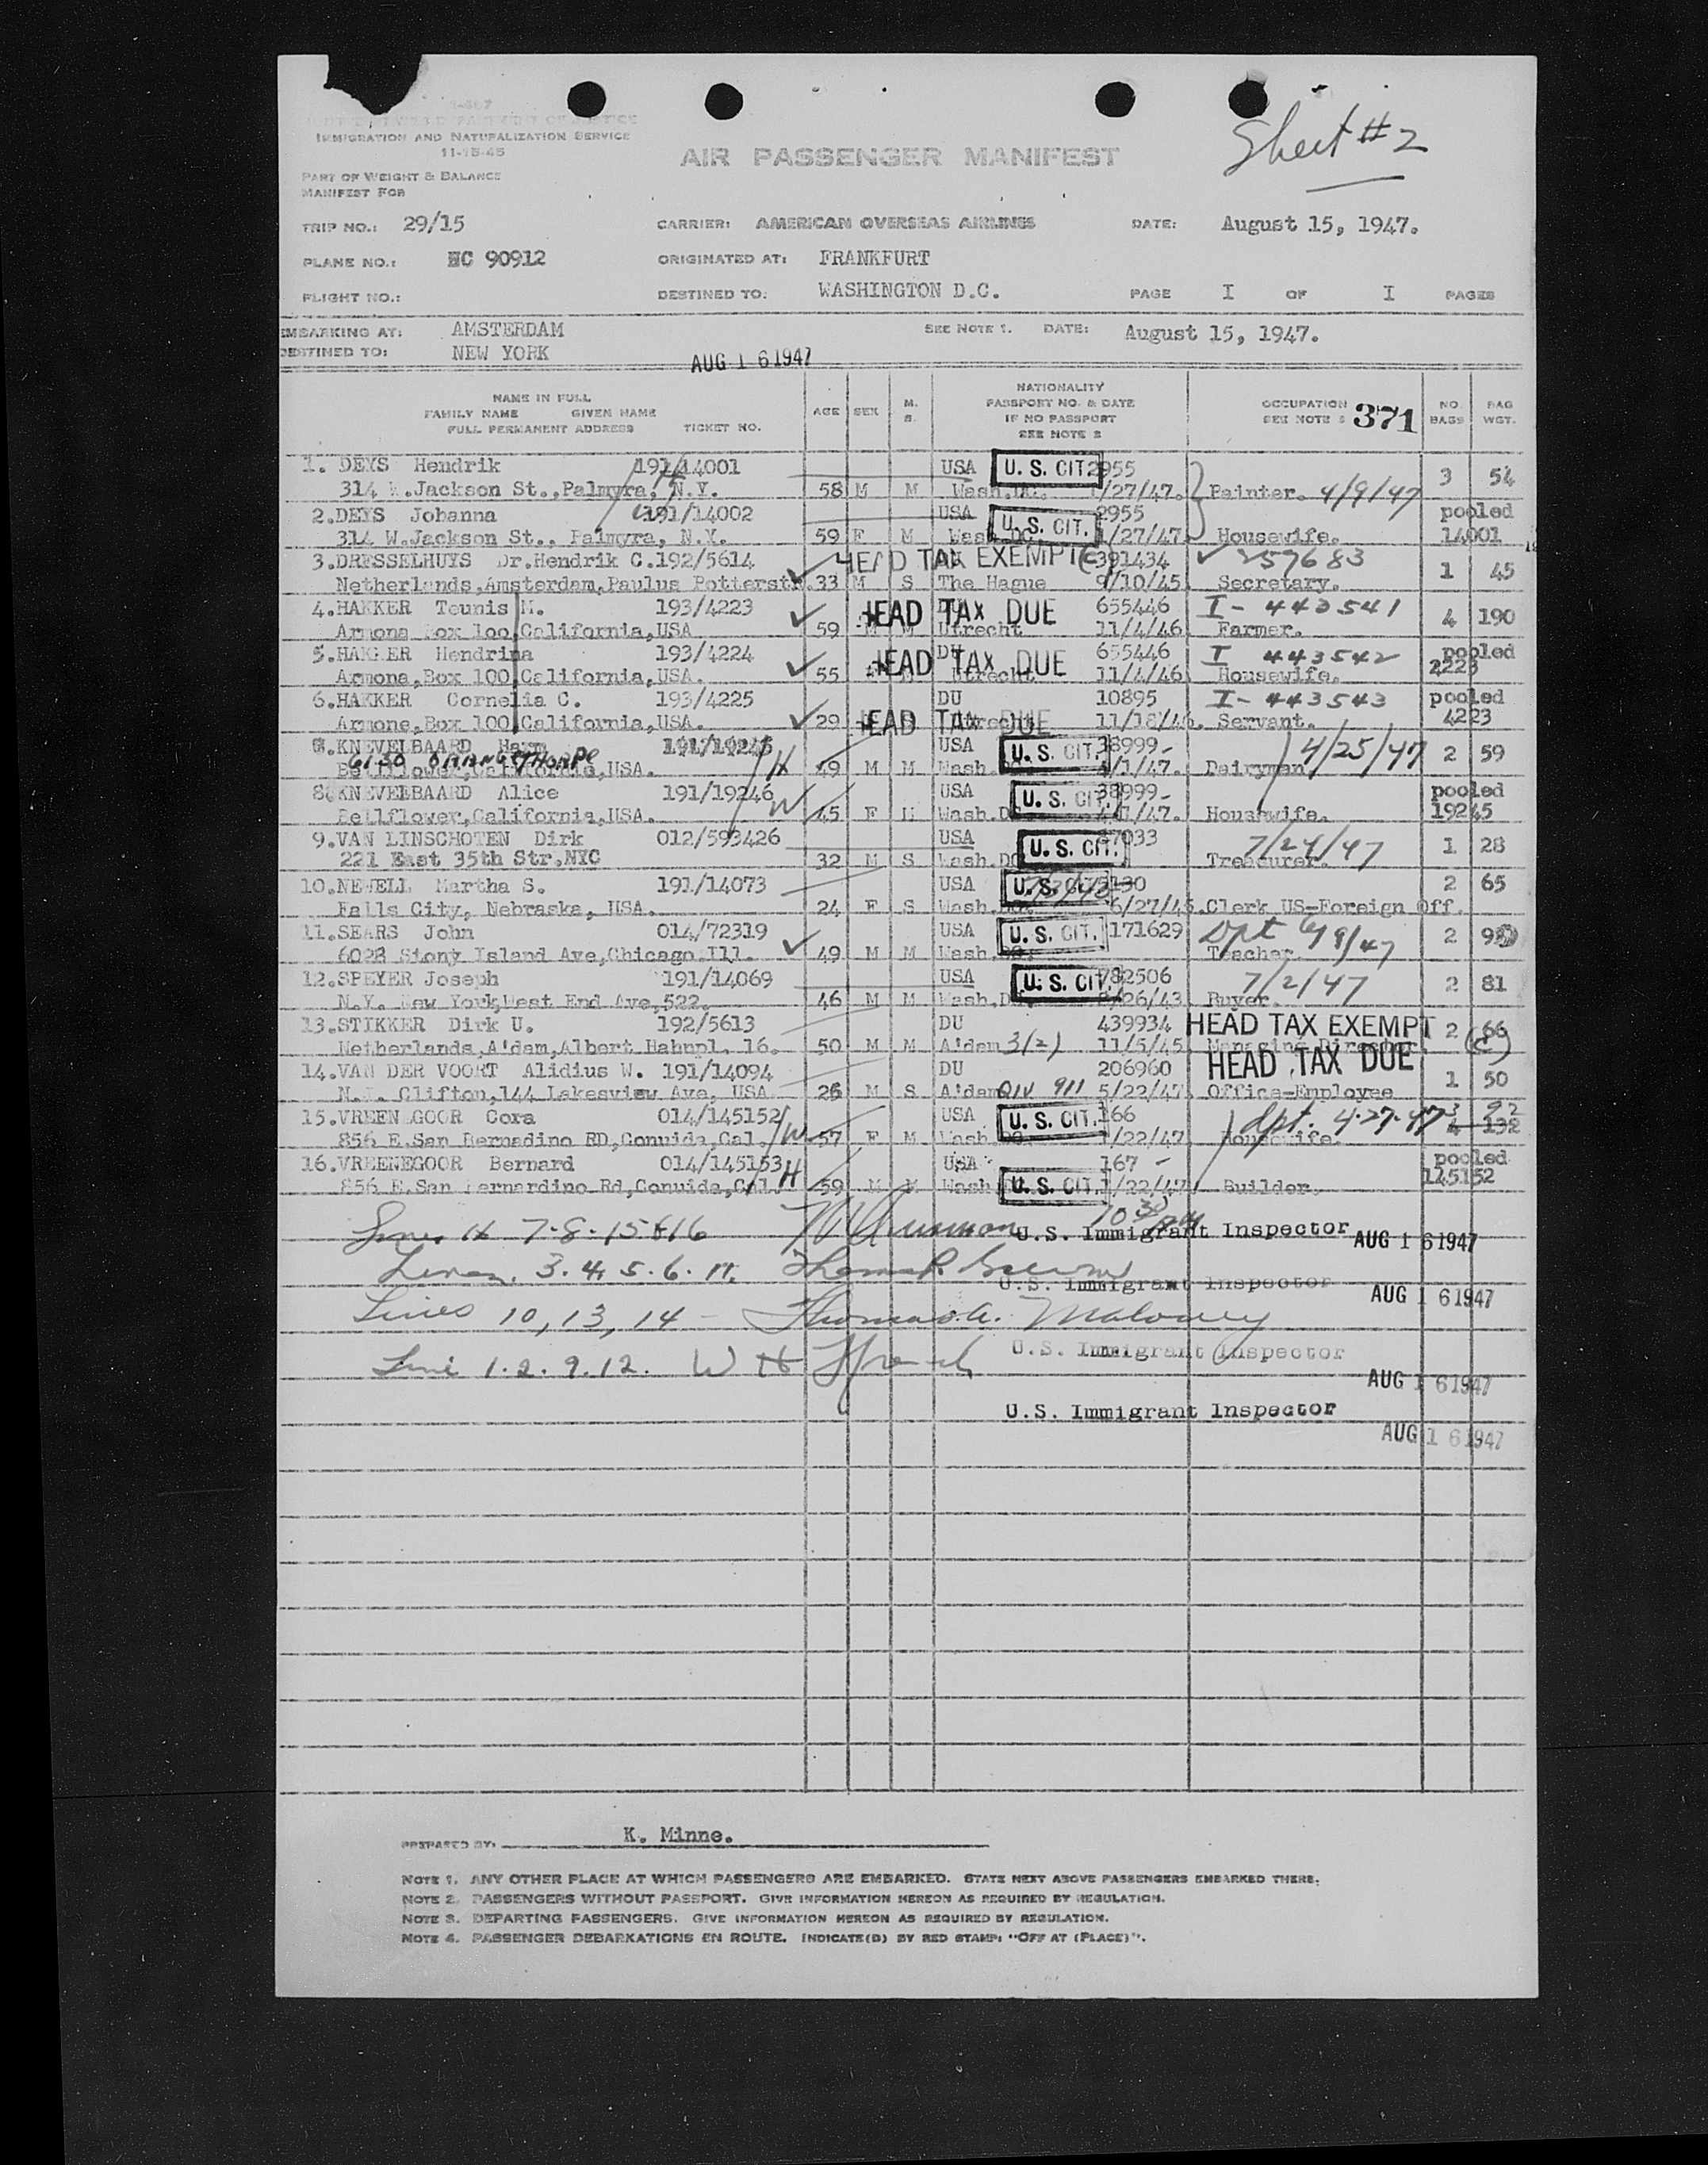 Sheet #2
IMMIGRATION AND NATURALIZATION SERVICE
11-15-45
AIR PASSENGER MANIFEST
PART OF WEIGHT & BALANCE
MANIFEST FOR
TRIP NO.: 29/15 CARRIER: AMERICAN OVERSEAS AIRLINES DATE: August 15, 1947.
PLANE NO.: NC 90912 ORIGINATED AT: FRANKFURT
FLIGHT NO.: DESTINED TO: WASHINGTON D.C. PAGE I OF I PAGES
EMBARKING AT: AMSTERDAM SEE NOTE 1. DATE: August 15, 1947.
DESTINED TO: NEW YORK
AUG 16 1947
NAME IN FULL
FAMILY NAME GIVEN NAME
FULL PERMANENT ADDRESS TICKET NO. AGE SEX M. S. NATIONALITY PASSPORT NO. & DATE IF NO PASSPORT SEE NOTE 2 OCCUPATION SEE NOTE 371 NO. BAGS BAG WGT.
1. DEYS Hendrik 191/14001 USA U. S. CIT. 2955 3 54
314 W.Jackson St.,Palmyra, N.Y. 58 M M Wash. 1/27/47. Painter. 4/9/47
2.DEYS Johanna 191/14002 USA U. S. CIT. 2955 pooled
314 W.Jackson St., Palmyra, N.Y. 59 F M Wash.DC. 1/27/47 Housewife. 14001
3.DRESSELHUYS Dr.Hendrik C.192/5614 HEAD TAX EXEMPT 391434 1 45
Netherlands,Amsterdam,Paulus Potterstr. 33 M S The Hague 9/10/45 Secretary.
4.HAKKER Teunis M. 193/4223 HEAD TAX DUE DU 655446 I-443541 4 190
Armona Box 100,California,USA 59 M M Utrecht 11/4/46 Farmer.
5.HAKKER Hendrina 193/4224 HEAD TAX DUE DU 655446 I 443542 pooled
Armona,Box 100,California,USA. 55 Utrecht 11/4/46 Housewife. 2223
6.HAKKER Cornelia C. 193/4225 DU 10895 I-443543 pooled
Armona,Box 100,California,USA. 29 HEAD TAX DUE Utrecht 11/18/46. Servant. 4223
7.KNEVELBAARD Harm 191/19245 USA U. S. CIT. 38999 4/25/47 2 59
6150 ORANGETHORPE
Bellflower,California,USA. H 49 M M Wash. 4/1/47. Dairyman
8.KNEVELBAARD Alice 191/19246 USA U. S. CIT. 38999 pooled
Bellflower,California,USA. W 45 F M Wash.DC 4/1/47. Housewife. 19245
9.VAN LINSCHOTEN Dirk 012/593426 USA U. S. CIT. 47033 7/24/47 1 28
221 East 35th Str,NYC 32 M S Wash.DC Treasurer.
10.NEWELL Martha S. 191/14073 USA U. S. CIT. 2 65
Falls City, Nebraska, USA. 24 F S Wash. 6/27/45. Clerk US-Foreign Off.
11.SEARS John 014/72319 USA U. S. CIT. 171629 Dpt 2
6028 Stony Island Ave,Chicago.Ill. 49 M M Wash.DC. Teacher.
12.SPEYER Joseph 191/14069 USA U. S. CIT. 782506 7/2/47 2 81
N.Y. New York,West End Ave,522. 46 M M Wash.DC. /26/43 Buyer.
13.STIKKER Dirk U. 192/5613 DU 439934 HEAD TAX EXEMPT 2 66
Netherlands,A'dam,Albert Hahnpl. 16. 50 M M A'dam 3(2) 11/5/45 Managing Director (C)
14.VAN DER VOORT Alidius W. 191/14094 DU 206960 HEAD TAX DUE 1 50
N.J. Clifton,144 Lakesview Ave, USA 26 M S A'dam QIV 911 5/22/47 Office-Employee
15.VREENEGOOR Cora 014/145152 USA U. S. CIT. 166 dpt. 4-27-47 3 92
856 E.San Bernadino RD,Conuida,Cal. W 57 F M Wash.DC. 1/22/47 Housewife. 4 132
16.VREENEGOOR Bernard 014/145153 USA 167 pooled
856 E.San Bernardino Rd,Conuida,Cal. H 59 M M Wash U. S. CIT. 1/22/47 Builder. 145152
Lines 7-8-15&16 U.S. Immigrant Inspector AUG 16 1947
Lines 3. 4. 5. 6. 11. U.S. Immigrant Inspector AUG 16 1947
Lines 10, 13, 14 - Thomas A. Maloney
U.S. Immigrant Inspector
AUG 16 1947
Line 1. 2. 9. 12. W H French
U.S. Immigrant Inspector
AUG 16 1947
PREPARED BY: K. Minne.
NOTE 1. ANY OTHER PLACE AT WHICH PASSENGERS ARE EMBARKED. STATE NEXT ABOVE PASSENGERS EMBARKED THERE.
NOTE 2. PASSENGERS WITHOUT PASSPORT. GIVE INFORMATION HEREON AS REQUIRED BY REGULATION.
NOTE 3. DEPARTING PASSENGERS. GIVE INFORMATION HEREON AS REQUIRED BY REGULATION.
NOTE 4. PASSENGER DEBARKATIONS EN ROUTE. INDICATE(D) BY RED STAMP: "OFF AT (PLACE)".